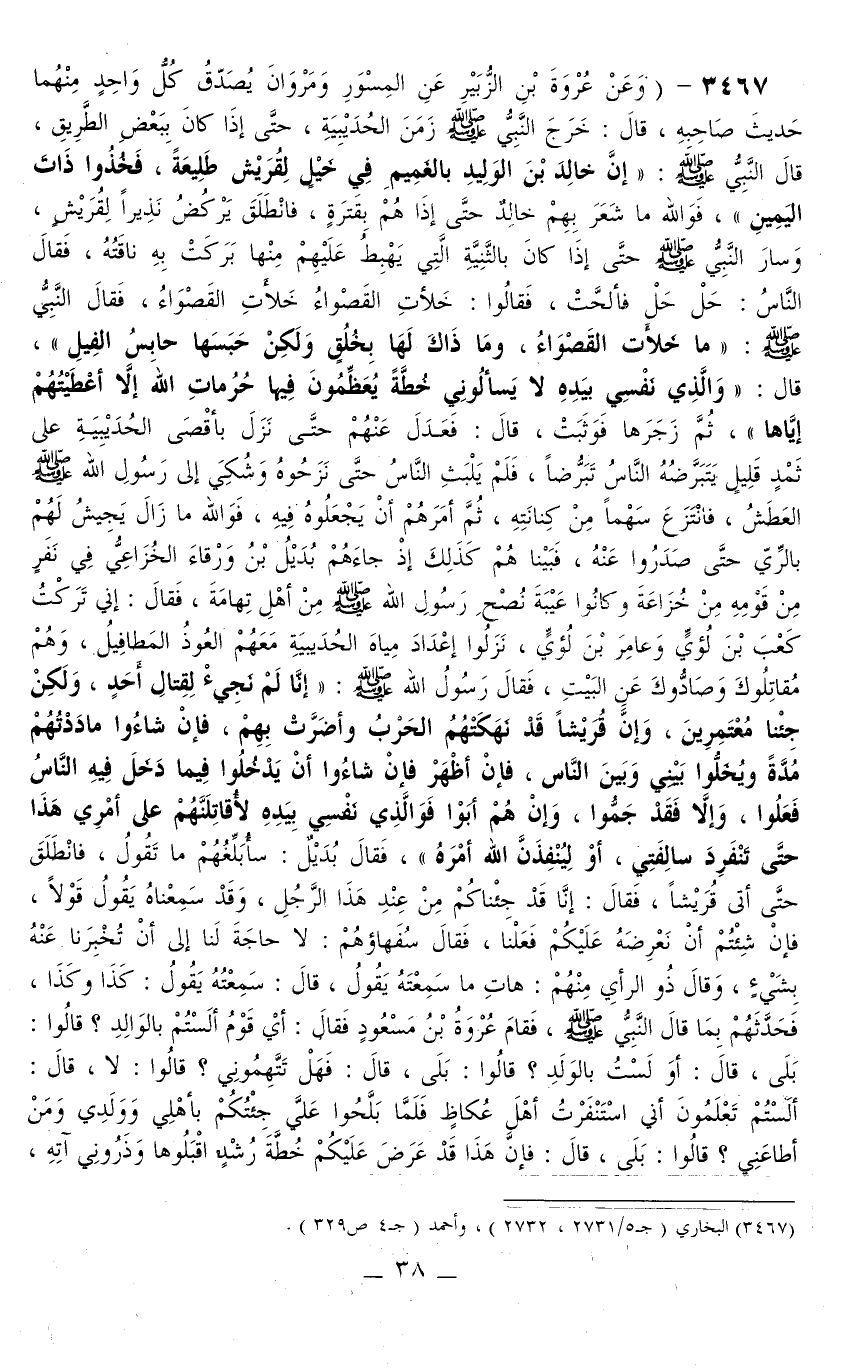 ٣٤٦٧ - ( وَعَنْ عُرْوَةَ بْنِ الزُّبَيْرِ عَنِ المِسْوَرِ وَمَرْوَانَ يُصَدّقُ كُلُّ وَاحِدٍ مِنْهُما
حَديثَ صَاحِبِهِ ، قالَ : خَرَجَ النَّبِيُّ ﷺ زَمَنَ الحُدَيْبِيَةِ ، حتَّى إذَا كانَ بِبَعْضِ الطَّرِيقِ ،
قالَ النَّبِيُّ ﷺ : « إنَّ خالِدَ بْنَ الوَلِيدِ بالغَمِيمِ فِي خَيْلٍ لِقُرَيْشٍ طَلِيعَةً ، فَخُذُوا ذَاتَ
اليَمِينِ » ، فَوَالله ما شَعَرَ بِهِمْ خالِدٌ حتَّى إذَا هُمْ بِقَتَرَةٍ ، فانْطَلَقَ يَرْكُضُ نَذِيراً لِقُرَيْشٍ ،
وَسارَ النَّبِيُّ ﷺ حتَّى إذَا كانَ بالثَّنِيَّةِ الَّتِي يَهْبِطُ عَلَيْهِمْ مِنْها بَرَكَتْ بِهِ ناقَتُهُ ، فَقالَ
النَّاسُ : حَلْ حَلْ فألحَّتْ ، فَقالُوا : خَلأتِ القَصْوَاءُ خَلأتِ القَصْوَاءُ ، فَقالَ النَّبِيُّ
ﷺ : « ما خَلأت القَصْوَاءُ ، وما ذَاكَ لَهَا بِخُلُقٍ وَلَكِنْ حَبَسَها حابِسُ الفِيلِ » ،
قال : « وَالَّذِي نَفْسِي بيَدِهِ لا يَسألُونِي خُطَّةً يُعَظِّمُونَ فِيها حُرُماتِ الله إلَّا أعْطَيْتُهُمْ
إيَّاها » ، ثُمَّ زَجَرَها فَوَثَبَتْ ، قالَ : فَعَدَلَ عَنْهُمْ حتَّى نَزَلَ بأقْصَى الحُدَيْبِيَةِ على
ثَمْدٍ قَلِيلٍ يَتَبَرَّضُهُ النَّاسُ تَبَرُّضاً ، فَلَمْ يَلْبَثِ النَّاسُ حتَّى نَزَحُوهُ وَشُكِيَ إلى رَسُولِ الله ﷺ
العَطَشُ ، فانْتَزَعَ سَهْماً مِنْ كِنانَتِهِ ، ثُمَّ أمَرَهُمْ أنْ يَجْعَلُوهُ فِيهِ ، فَوَالله ما زَالَ يَجِيشُ لَهُمْ
بالرِّيّ حتَّى صَدَرُوا عَنْهُ ، فَبَيْنا هُمْ كَذَلِكَ إذْ جاءَهُمْ بُدَيْلُ بْنُ وَرْقاءَ الخُزَاعِيُّ فِي نَفَرٍ
مِنْ قَوْمِهِ مِنْ خُزَاعَةَ وكانُوا عَيْبَةَ نُصْحِ رَسُولِ الله ﷺ مِنْ أهْلِ تِهامَةَ ، فَقالَ : إني تَرَكْتُ
كَعْبَ بْنَ لُؤَيٍّ وَعامِرَ بْنَ لُؤيٍّ ، نَزَلُوا إعْدَادَ مِياهِ الحُدَيبِيَةِ مَعَهُمُ العُوذُ المَطافِيلُ ، وَهُمْ
مُقاتِلُوكَ وَصَادُّوكَ عَنِ البَيْتِ ، فَقالَ رَسُولُ الله ﷺ : « إنَّا لَمْ نَجِيءْ لِقِتالِ أَحَدٍ ، وَلَكِنْ
جِئْنا مُعْتَمِرِينَ ، وَإنَّ قُرَيْشاً قَدْ نَهَكَتْهُمُ الحَرْبُ وأضَرَّتْ بِهِمْ ، فإنْ شاءُوا مادَدْتُهُمْ
مُدَّةً ويُخَلُّوا بَيْنِي وَبَينَ النَّاس ، فإنْ أظْهَرْ فإنْ شاءُوا أنْ يَدْخُلُوا فِيما دَخَلَ فِيهِ النَّاسُ
فَعَلُوا ، وَإلَّا فَقَدْ جَمُّوا ، وَإنْ هُمْ أبَوْا فَوَالَّذِي نَفْسِي بِيَدِهِ لأُقاتِلَنَّهُمْ على أمْرِي هَذَا
حتَّى تَنْفَرِدَ سالِفَتِي ، أوْ لِيُنْفِذَنَّ الله أمْرَهُ » ، فَقالَ بُدَيْلٌ : سأُبَلِّغُهُمْ ما تَقُولُ ، فانْطَلَقَ
حتَّى أتى قُرَيْشاً ، فَقالَ : إنَّا قَدْ جِئْناكُمْ مِنْ عِنْدِ هَذَا الرَّجُلِ ، وَقَدْ سَمِعْناهُ يَقُولُ قَوْلاً ،
فإنْ شِئْتُمْ أنْ نَعْرِضَهُ عَلَيْكُمْ فَعَلْنا ، فَقالَ سُفَهاؤُهُمْ : لا حاجَةَ لَنا إلى أنْ تُخْبِرَنا عَنْهُ
بِشَيْءٍ ، وَقالَ ذُو الرأي مِنْهُمْ : هاتِ ما سَمِعْتَهُ يَقُولُ ، قالَ : سَمِعْتُهُ يَقُولُ : كَذَا وكَذَا ،
فَحَدَّثَهُمْ بِمَا قالَ النَّبِيُّ ﷺ ، فَقامَ عُرْوَةُ بْنُ مَسْعُودٍ فَقالَ : أيْ قَوْمُ ألَسْتُمْ بالوَالِدِ ؟ قالُوا :
بَلَى ، قالَ : أوَ لَسْتُ بالوَلَدِ ؟ قالُوا : بَلَى ، قالَ : فَهَلْ تَتَّهِمُونِي ؟ قالُوا : لا ، قالَ :
ألَسْتُمْ تَعْلَمُونَ أني اسْتَنْفَرْتُ أهْلَ عُكاظٍ فَلَمَّا بَلَّحُوا عَليَّ جِئْتُكُمْ بأهْلِي وَوَلَدِي وَمَنْ
أطاعَنِي ؟ قالُوا : بَلَى ، قالَ : فإنَّ هَذَا قَدْ عَرَضَ عَلَيْكُمْ خُطَّةَ رُشْدٍ اقْبَلُوها وَذَرُونِي آتِهِ ،
(٣٤٦٧) البخاري ( جـ٥/٢٧٣١ ، ٢٧٣٢ ) ، وأحمد ( جـ٤ ص٣٢٩ ) .
_ ٣٨ _